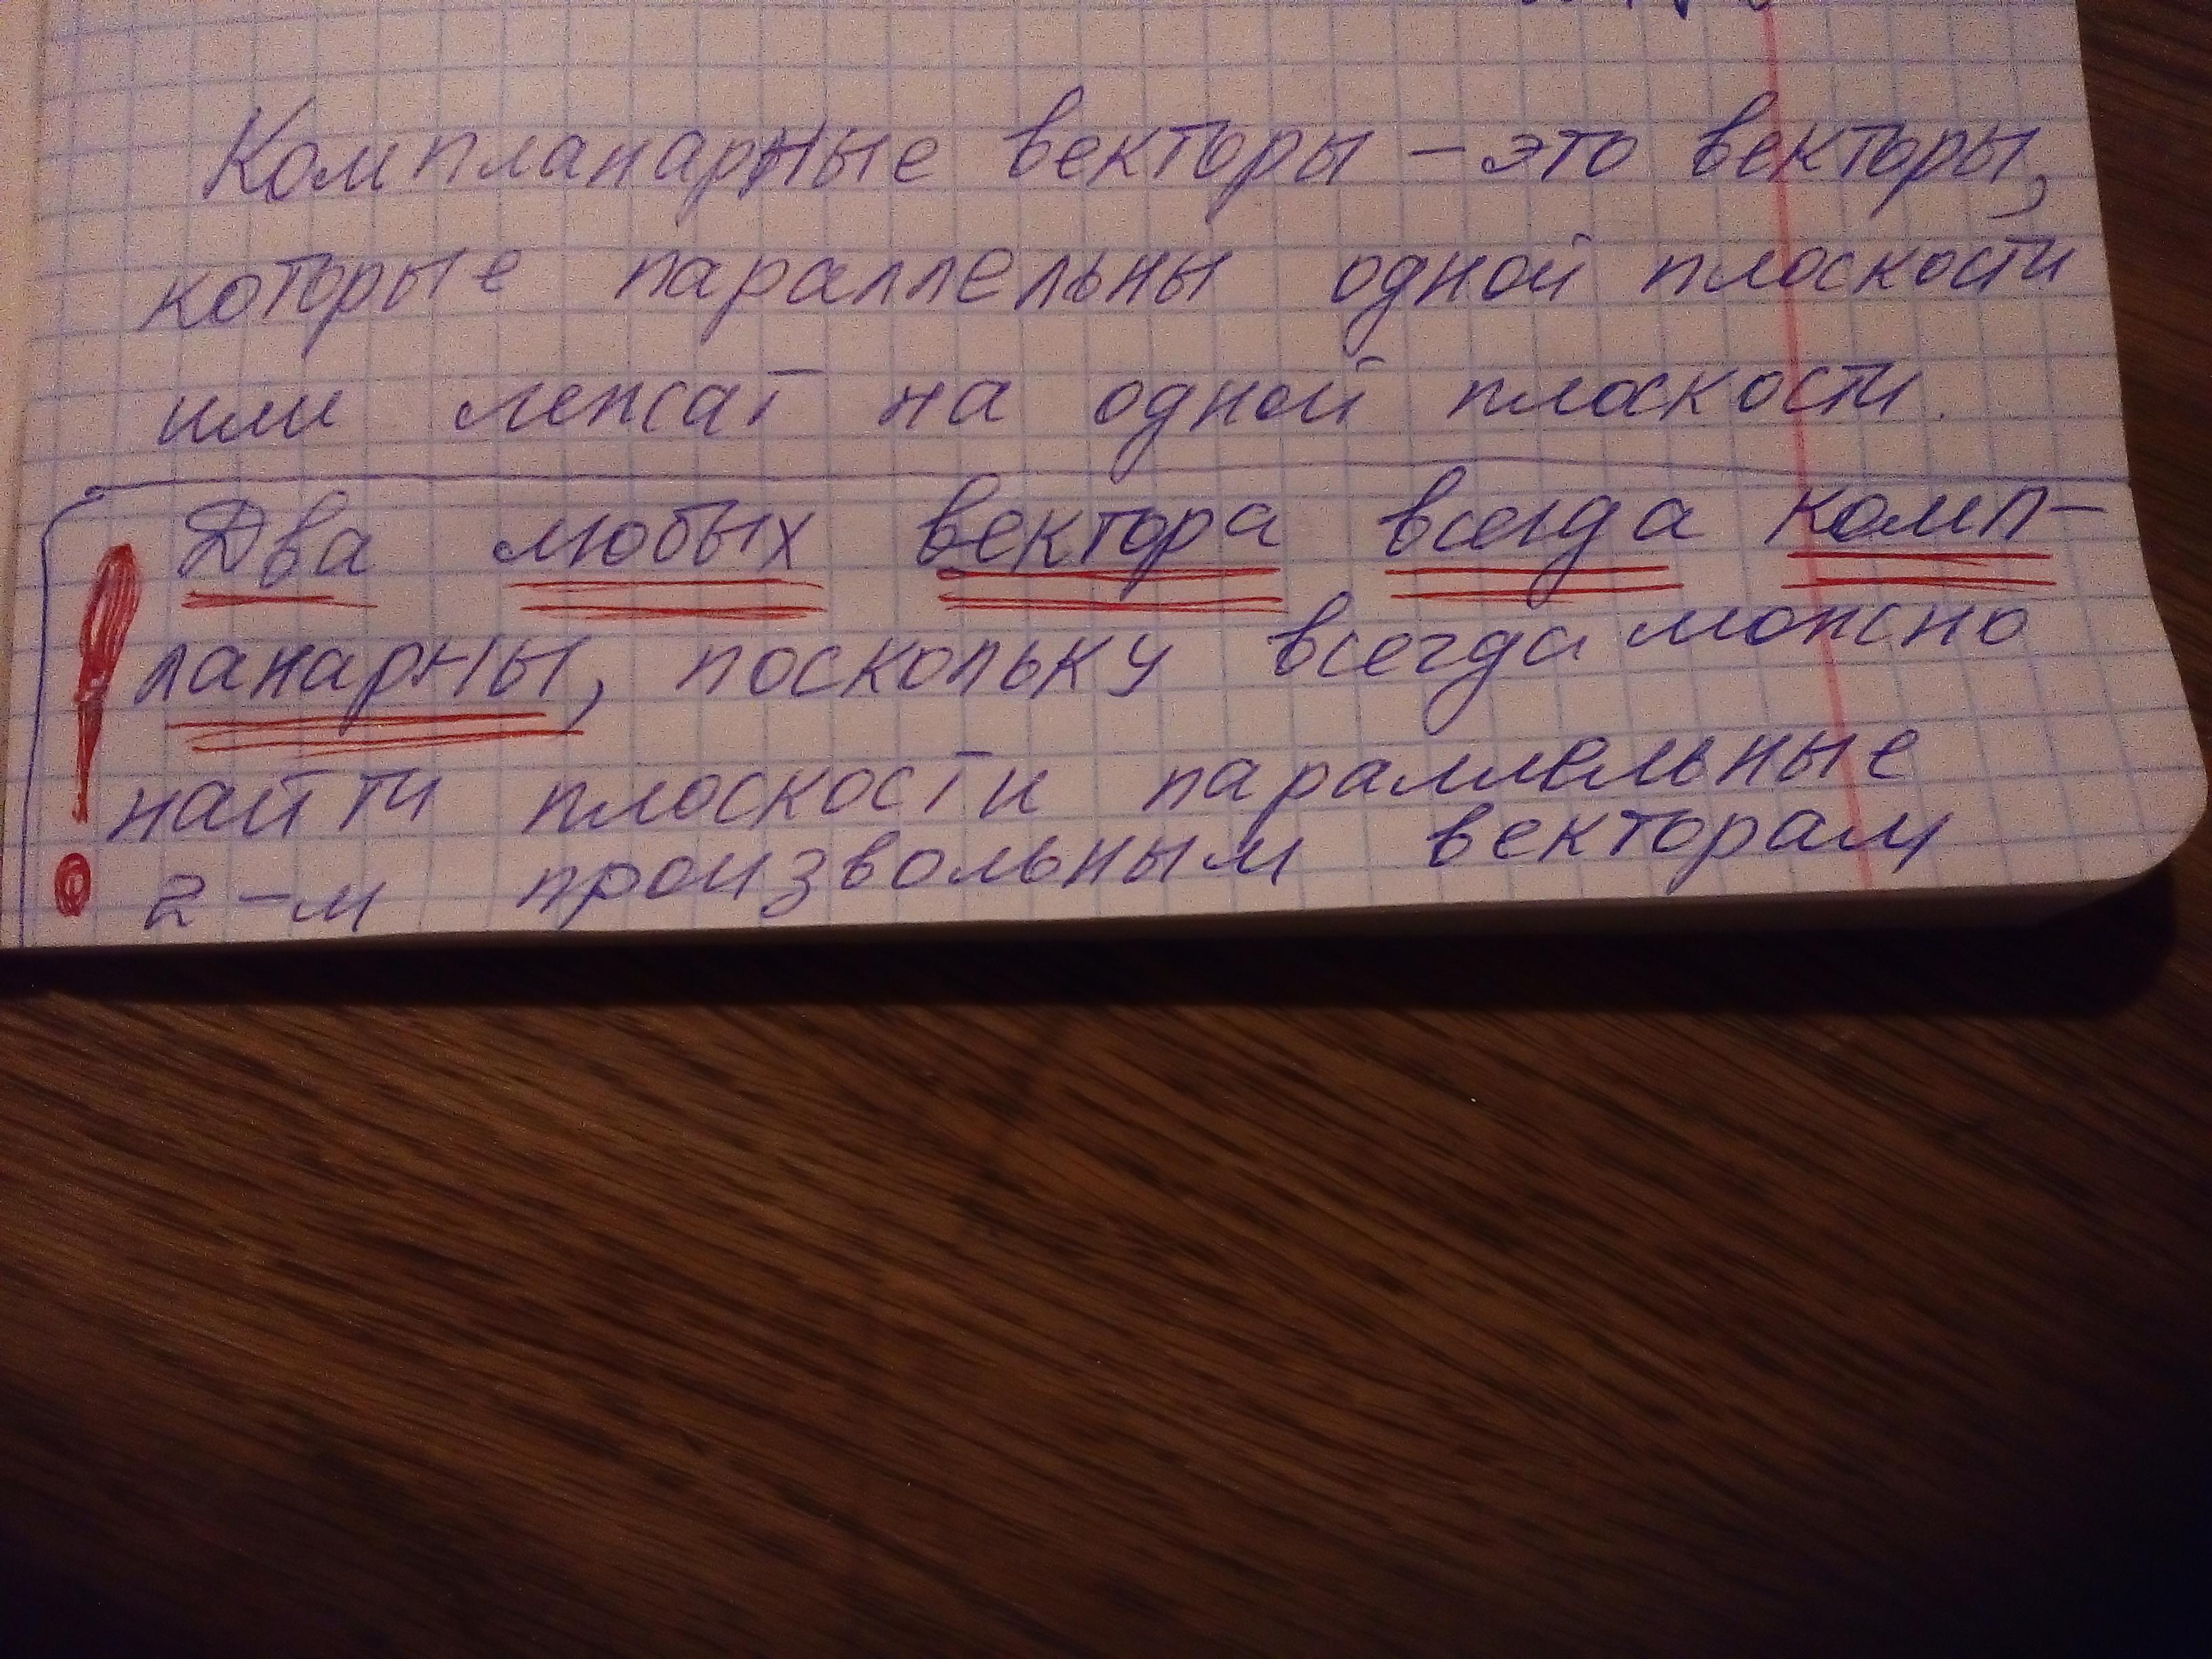 Компланарные векторы – это векторы,
которые параллельны одной плоскости
или лежат на одной плоскости.
Два любых вектора всегда комп-
ланарны, поскольку всегда можно
найти плоскости параллельные
2-м произвольным векторам